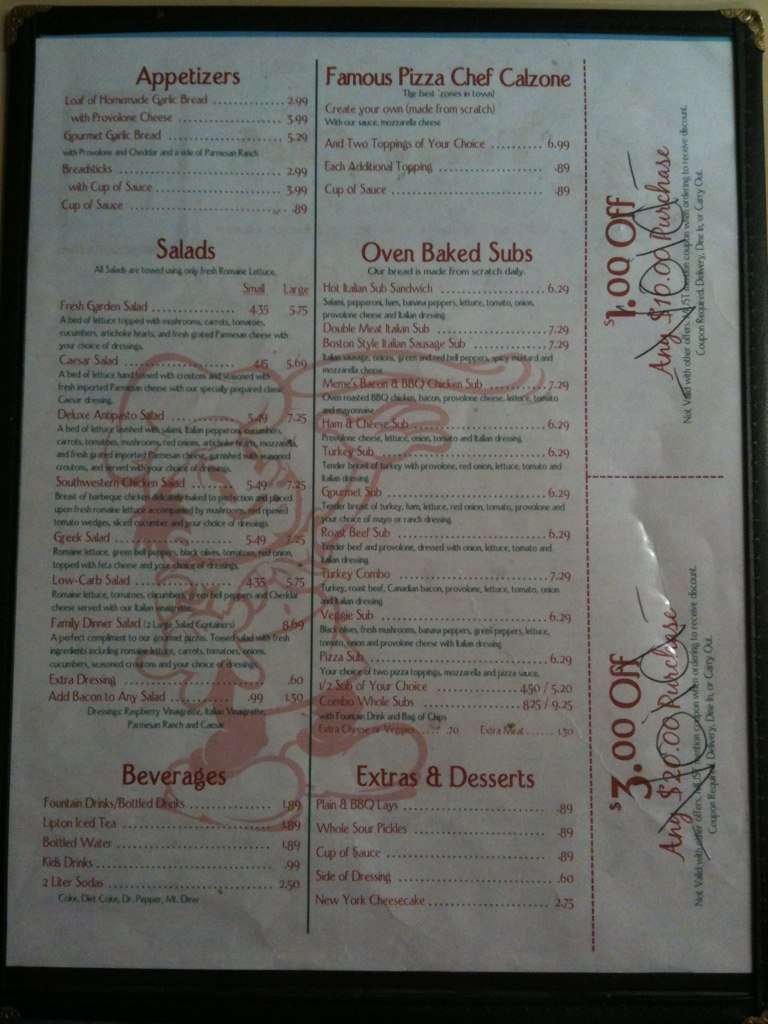 Appetizers
Loaf of Homemade Garlic Bread 2.99
with Provolone Cheese 3.99
Gourmet Garlic Bread 5.29
with Provolone and Cheddar and a side of Parmesan Ranch
Breadsticks 2.99
with Cup of Sauce 3.99
Cup of Sauce .89
Salads
All Salads are tossed using only fresh Romaine Lettuce.
Small Large
Fresh Garden Salad 4.35 5.75
A bed of lettuce topped with mushrooms, carrots, tomatoes,
cucumbers, artichoke hearts, and fresh grated Parmesan cheese with
your choice of dressings.
Caesar Salad 5.69
A bed of lettuce hand tossed with croutons and seasoned with
fresh imported Parmesan cheese with our specially prepared classic
Caesar dressing.
Deluxe Antipasto Salad 5.49 7.25
A bed of lettuce lavished with salami, Italian pepperoni, cucumbers,
carrots, tomatoes, mushrooms, red onions, artichoke hearts, mozzarella,
and fresh grated imported Parmesan cheese, garnished with seasoned
croutons, and served with your choice of dressings.
Southwestern Chicken Salad 5.49 7.25
Breast of barbeque chicken delicately baked to perfection and placed
upon fresh romaine lettuce accompanied by mushrooms, red ripened
tomato wedges, sliced cucumber and your choice of dressings.
Greek Salad 5.49 7.25
Romaine lettuce, green bell peppers, black olives, tomatoes, red onion,
topped with feta cheese and your choice of dressings.
Low-Carb Salad 4.35 5.75
Romaine lettuce, tomatoes, cucumbers, green bell peppers and Cheddar
cheese served with our Italian vinaigrette.
Family Dinner Salad (2 Large Salad Containers) 8.69
A perfect compliment to our gourmet pizzas. Tossed salad with fresh
ingredients including romaine lettuce, carrots, tomatoes, onions,
cucumbers, seasoned croutons and your choice of dressings.
Extra Dressing .60
Add Bacon to Any Salad .99 1.50
Dressings: Raspberry Vinaigrette, Italian Vinaigrette,
Parmesan Ranch and Caesar
Beverages
Fountain Drinks/Bottled Drinks 1.89
Lipton Iced Tea 1.89
Bottled Water 1.89
Kids Drinks .99
2 Liter Sodas 2.50
Coke, Diet Coke, Dr. Pepper, Mt. Dew
Famous Pizza Chef Calzone
The best 'zones in town!
Create your own (made from scratch)
With our sauce, mozzarella cheese
And Two Toppings of Your Choice 6.99
Each Additional Topping .89
Cup of Sauce .89
Oven Baked Subs
Our bread is made from scratch daily.
Hot Italian Sub Sandwich 6.29
Salami, pepperoni, ham, banana peppers, lettuce, tomato, onion,
provolone cheese and Italian dressing
Double Meat Italian Sub 7.29
Boston Style Italian Sausage Sub 7.29
Italian sausage, onions, green and red bell peppers, spicy mustard and
mozzarella cheese
Meme's Bacon & BBQ Chicken Sub 7.29
Oven roasted BBQ chicken, bacon, provolone cheese, lettuce, tomato
and mayonnaise
Ham & Cheese Sub 6.29
Provolone cheese, lettuce, onion, tomato and Italian dressing
Turkey Sub 6.29
Tender breast of turkey with provolone, red onion, lettuce, tomato and
Italian dressing
Gourmet Sub 6.29
Tender breast of turkey, ham, lettuce, red onion, tomato, provolone and
your choice of mayo or ranch dressing
Roast Beef Sub 6.29
Tender beef and provolone, dressed with onion, lettuce, tomato and
Italian dressing
Turkey Combo 7.29
Turkey, roast beef, Canadian bacon, provolone, lettuce, tomato, onion
and Italian dressing
Veggie Sub 6.29
Black olives, fresh mushrooms, banana peppers, green peppers, lettuce,
tomato, onion and provolone cheese with Italian dressing
Pizza Sub 6.29
Your choice of two pizza toppings, mozzarella and pizza sauce,
1/2 Sub of Your Choice 4.50 / 5.20
Combo Whole Subs 8.25 / 9.25
with Fountain Drink and Bag of Chips
Extra Cheese or Veggies .70 Extra Meat 1.50
Extras & Desserts
Plain & BBQ Lays .89
Whole Sour Pickles .89
Cup of Sauce .89
Side of Dressing .60
New York Cheesecake 2.75
$1.00 Off
Any $10.00 Purchase
Not Valid with other offers. MUST mention coupon when ordering to receive discount.
Coupon Required. Delivery, Dine In, or Carry Out.
$3.00 Off
Any $20.00 Purchase
Not Valid with other offers. MUST mention coupon when ordering to receive discount.
Coupon Required. Delivery, Dine In, or Carry Out.